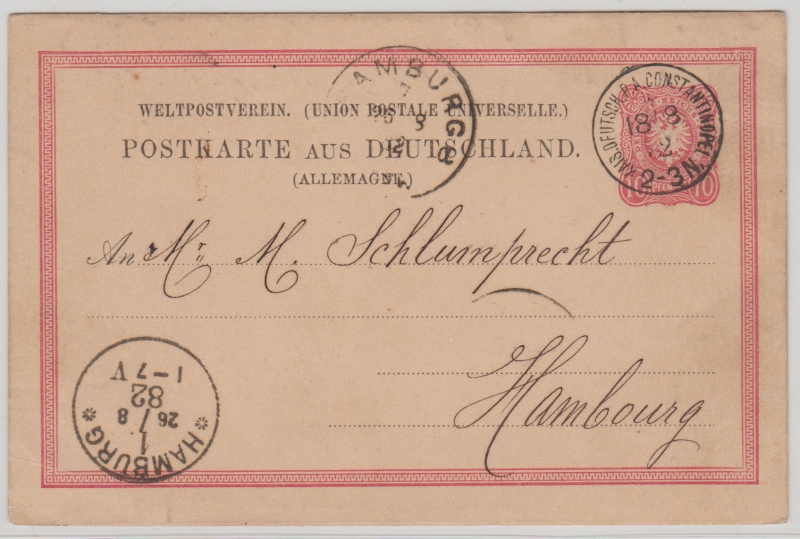 WELTPOSTVEREIN. (UNION POSTALE UNIVERSELLE.)
POSTKARTE AUS DEUTSCHLAND.
(ALLEMAGNE.)
KAIS. DEUTSCH. P.A. CONSTANTINOPEL
18 8
2-3N.
10 PFENNIG 10
HAMBURG 8
An Mr. M. Schlumprecht
Hambourg
* HAMBURG *
1
26/8
82
1-7 V